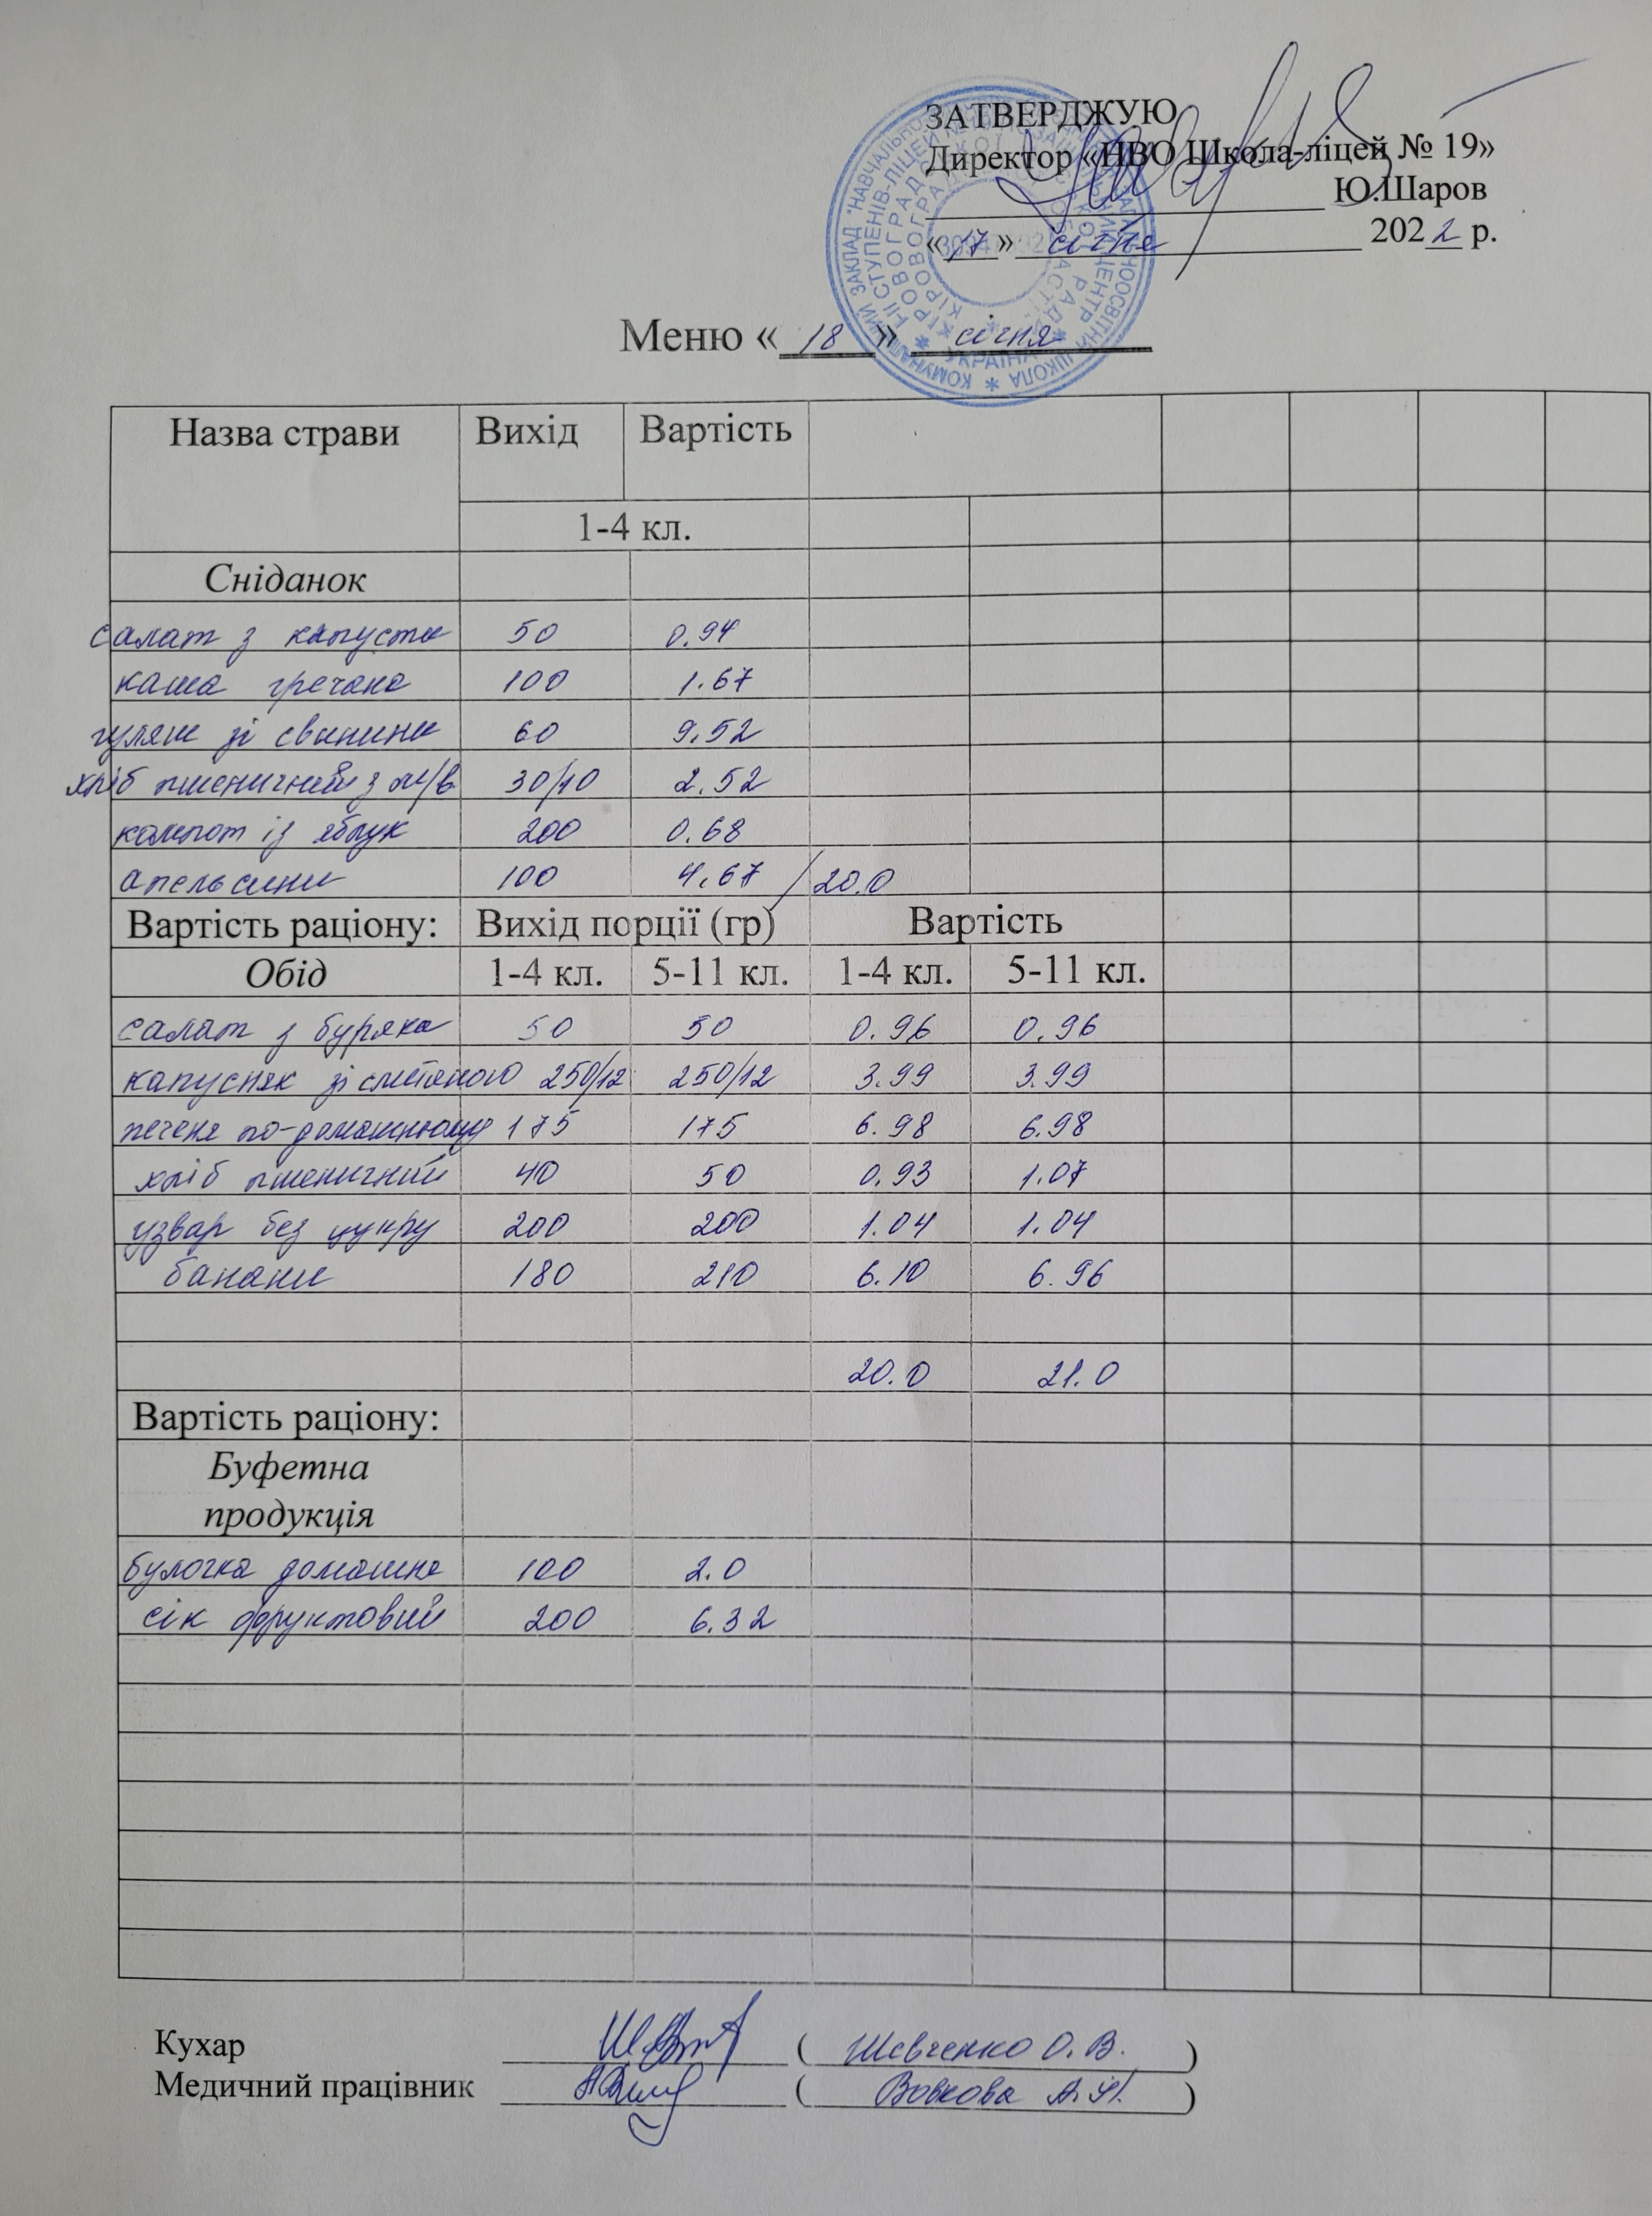 ЗАТВЕРДЖУЮ
Директор «НВО Школа-ліцей № 19»
Ю.Шаров
«17» січня 2022 р.
Меню «18» січня
Назва страви Вихід Вартість
1-4 кл.
Сніданок
салат з капусти 50 0.94
каша гречана 100 1.67
гуляш зі свинини 60 9.52
хліб пшеничний з м/в 30/10 2.52
компот із яблук 200 0.68
апельсини 100 4.67 / 20.0
Вартість раціону: Вихід порції (гр) Вартість
Обід 1-4 кл. 5-11 кл. 1-4 кл. 5-11 кл.
салат з буряка 50 50 0.96 0.96
капусняк зі сметаною 250/12 250/12 3.99 3.99
печеня по-домашньому 175 175 6.98 6.98
хліб пшеничний 40 50 0.93 1.07
узвар без цукру 200 200 1.04 1.04
банани 180 210 6.10 6.96
20.0 21.0
Вартість раціону:
Буфетна
продукція
булочка домашня 100 2.0
сік фруктовий 200 6.32
Кухар ( Шевченко О. В. )
Медичний працівник ( Вовкова )